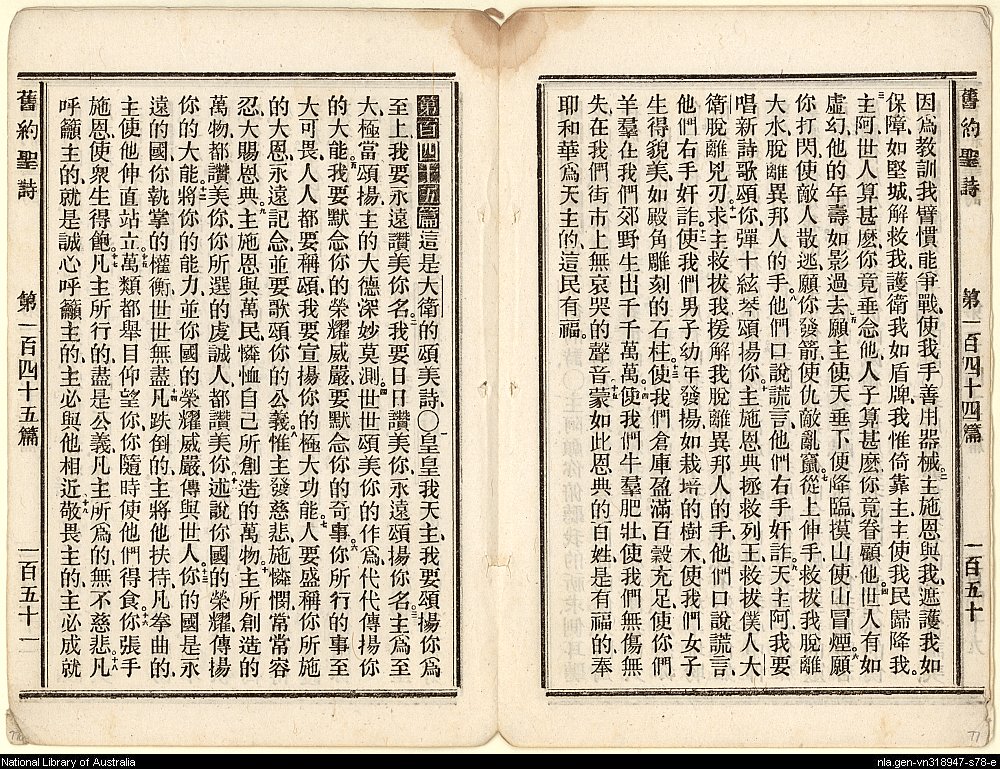 舊約聖詩 第一百四十四篇 一百五十
因爲教訓我臂慣能爭戰、使我手善用器械。二主施恩與我、遮護我如
保障、如堅城、解救我、護衛我如盾牌、我惟倚靠主、主使我民歸降我。
三主阿、世人算甚麽、你竟垂念他、人子算甚麽、你竟眷顧他。四世人有如
虛幻、他的年壽如影過去。五願主使天垂下、便降臨、摸山使山冒煙。六願
你打閃、使敵人散逃、願你發箭、使仇敵亂竄。七從上伸手、救拔我脫離
大水、脫離異邦人的手。八他們口說謊言、他們右手奸詐。九天主阿、我要
唱新詩歌頌你、彈十絃琴頌揚你。十主施恩典拯救列王、救拔僕人大
衛脫離凶刃。十一求主救拔我、援解我脫離異邦人的手、他們口說謊言、
他們右手奸詐。十二使我們男子幼年發揚、如栽培的樹木、使我們女子
生得貌美、如殿角雕刻的石柱。十三使我們倉庫盈滿、百穀充足、使你們
羊羣在我們郊野、生出千千萬萬。十四使我們牛羣肥壯、使我們無傷無
失、在我們街市上無哀哭的聲音。十五蒙如此恩典的百姓、是有福的、奉
耶和華爲天主的、這民有福。
第百四十五篇這是大衛的頌美詩。○一皇皇我天主、我要頌揚你、爲
至上、我要永遠讚美你名。二我要日日讚美你、永遠頌揚你名。三主爲至
大、極當頌揚、主的大德深妙莫測。四世世頌美你的作爲、代代傳揚你
的大能。五我要默念你的榮耀威嚴、要默念你的奇事。六你所行的事至
大可畏、人人都要稱頌、我要宣揚你的極大功能。七人要盛稱你所施
的大恩、永遠記念、並要歌頌你的公義。八惟主發慈悲、施憐憫、常常容
忍、大賜恩典。九主施恩與萬民、憐恤自己所創造的萬物。十主所創造的
萬物都讚美你、你所選的虔誠人、都讚美你。十一述說你國的榮耀、傳揚
你的大能。十二將你的能力、並你國的榮耀威嚴、傳與世人。十三你的國是永
遠的國、你執掌的權衡、世世無盡。十四凡跌倒的主將他扶持、凡拳曲的
主使他伸直站立。十五萬類都舉目仰望你、你隨時使他們得食。十六你張手
施恩、使衆生得飽。十七凡主所行的、盡是公義、凡主所爲的、無不慈悲。十八凡
呼籲主的、就是誠心呼籲主的、主必與他相近。十九敬畏主的、主必成就
舊約聖詩 第一百四十五篇 一百五十一
77
National Library of Australia
nla.gen-vn318947-s78-e